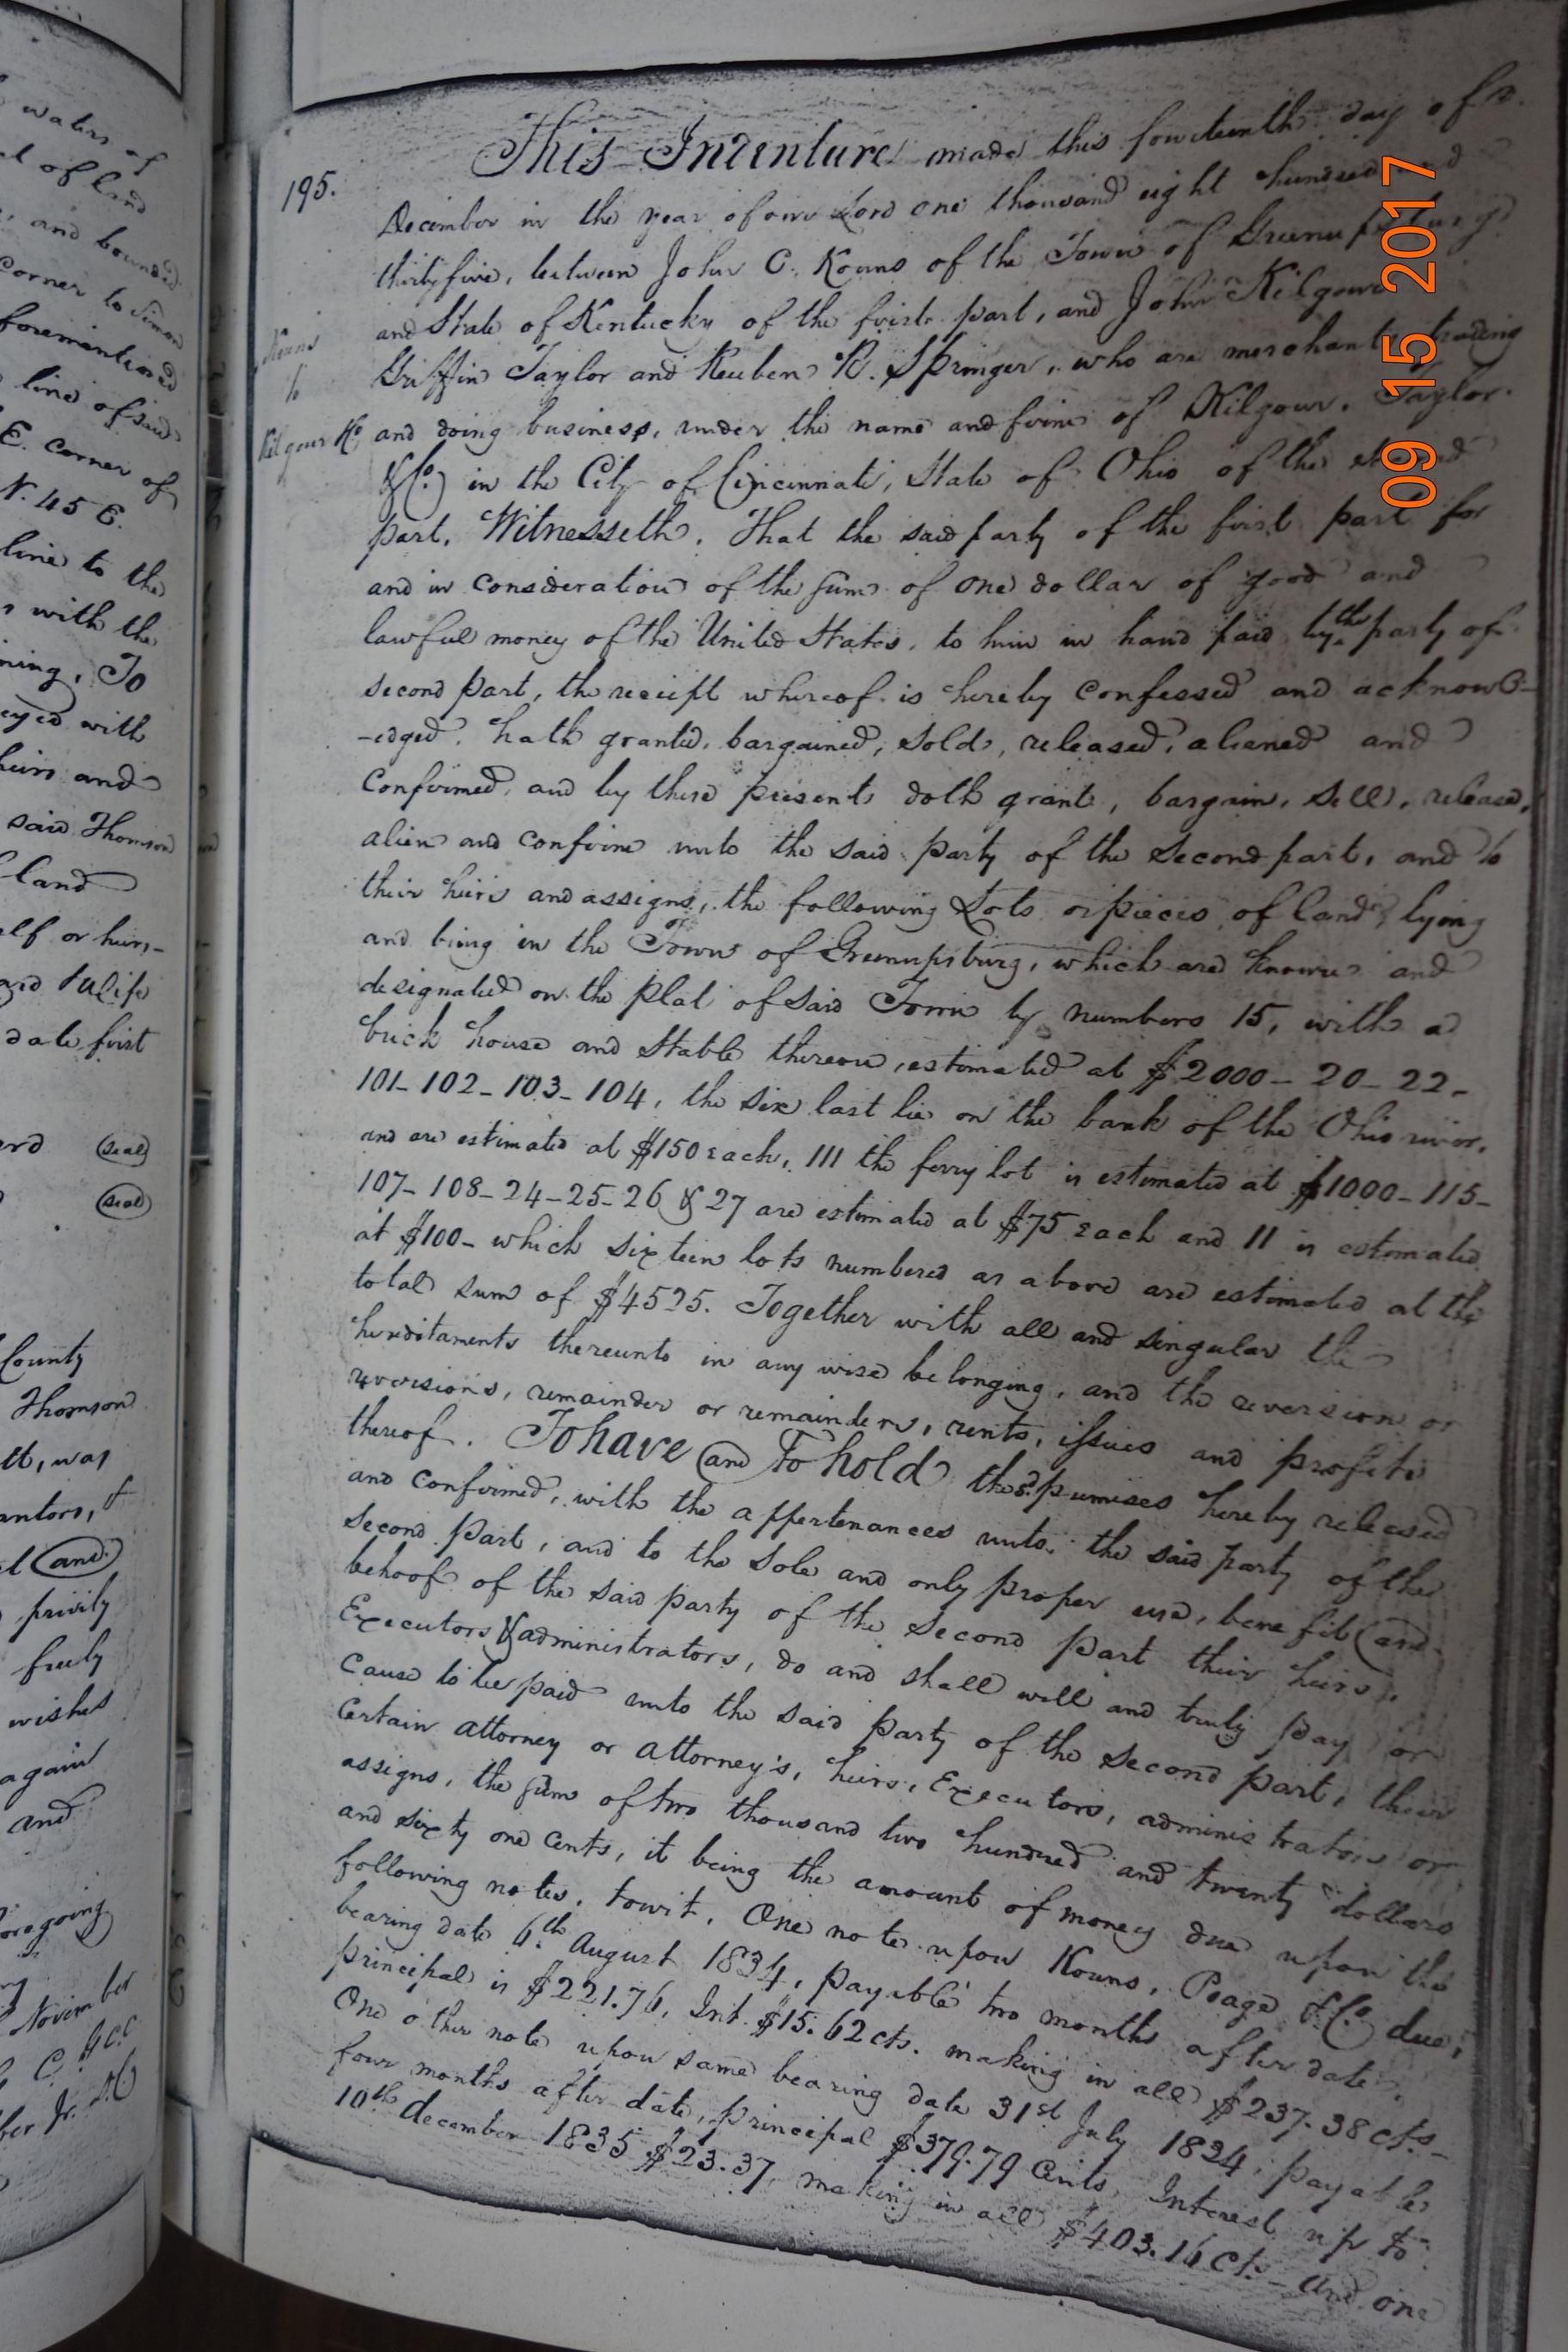 waters of
of land
and bounded
Corner to Simon
forementioned
line of said
E. corner of
N. 45 E.
line to the
with the
To
with
heirs and
said Thomson
land
or heirs,
date first
(seal)
(seal)
County
Thomson
was
(and)
privily
freely
wishes
again
and
November
195.
Kouns
to
Kilgour &c
This Indenture made this fourteenth day of
December in the year of our Lord one thousand eight hundred and
thirty five, between John C. Kouns of the Town of Greenupsburg
and State of Kentucky of the first part, and John Kilgour
Griffin Taylor and Reuben R. Springer, who are merchants trading
and doing business, under the name and firm of Kilgour, Taylor.
&Co.) in the City of Cincinnati, State of Ohio of the second
part, Witnesseth, That the said party of the first part for
and in consideration of the sum of one dollar of good and
lawful money of the United States, to him in hand paid by the party of
second part, the receipt whereof is hereby confessed and acknowl-
-edged, hath granted, bargained, sold, released, aliened and
Confirmed, and by these presents doth grant, bargain, sell, release,
alien and confirm unto the said party of the second part, and to
their heirs and assigns, the following Lots or pieces of land, lying
and being in the Town of Greenupsburg, which are known and
designated on the plat of said Town by numbers 15, with a
brick house and Stable thereon, estimated at $2000_ 20_ 22_
101_ 102_ 103_ 104, the six last lie on the bank of the Ohio river,
and are estimated at $150 each, 111 the ferry lot is estimated at $1000_ 115_
107_ 108_ 24_ 25_ 26 & 27 are estimated at $75 each and 11 is estimated
at $100_ which sixteen lots numbered as above are estimated at the
total sum of $4525. Together with all and singular the
hereditaments thereunto in any wise belonging, and the reversion or
reversions, remainder or remainders, rents, issues and profits
thereof. To have (and) To hold the sd. premises hereby released
and confirmed, with the appertenances unto the said party of the
second part, and to the sole and only proper use, benefit (and
behoof of the said party of the second part their heirs,
Executors & administrators, do and shall well and truly pay or
Cause to be paid unto the said party of the second part, their
Certain attorney or attorney's, heirs, Executors, administrators or
assigns, the sum of two thousand two hundred and twenty dollars
and sixty one cents, it being the amount of money due upon the
following notes, towit, One note upon Kouns, Poage & Co. due,
bearing date 6th August 1834, payable two months after date,
principal is $221.76, Int. $15.62 cts. making in all $237.38 cts_
One other note upon same bearing date 31st July 1834, payable
four months after date, principal $379.79 Cents, Interest up to
10th december 1835 $23.37, making in all $403.16 cts_ And one
09 15 2017